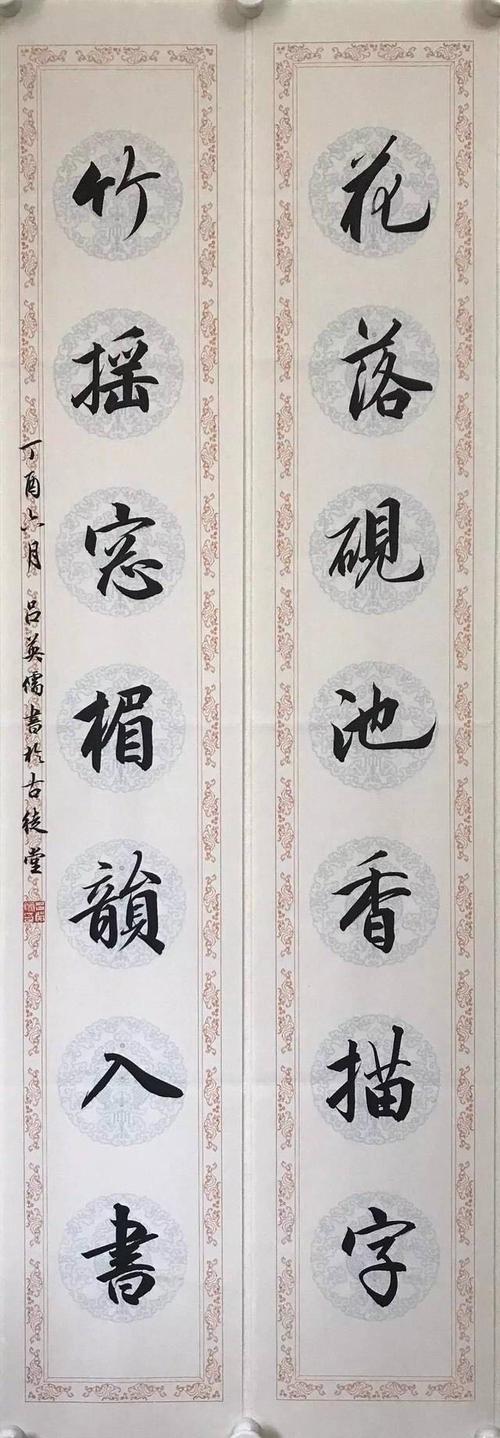 花落硯池香描字
竹摇窓楣韻入書
丁酉六月 吕英儒書於古徒堂